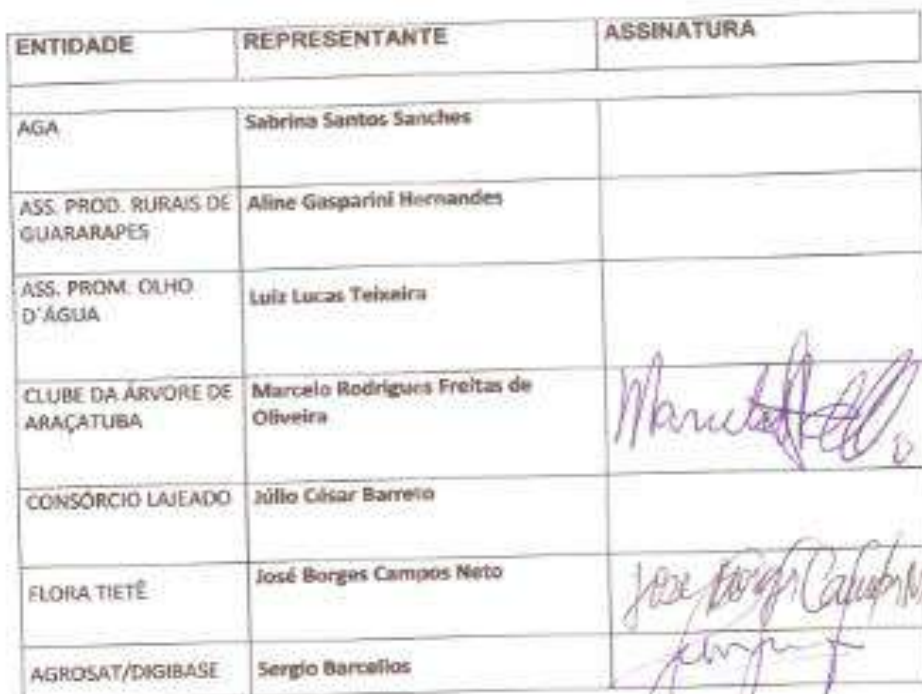 ENTIDADE REPRESENTANTE ASSINATURA
AGA Sabrina Santos Sanches
ASS. PROD. RURAIS DE Aline Gasparini Hernandes
GUARARAPES
ASS. PROM. OLHO Luiz Lucas Teixeira
D´ÁGUA
CLUBE DA ÁRVORE DE Marcelo Rodrigues Freitas de
ARAÇATUBA Oliveira
CONSÓRCIO LAJEADO Júlio César Barreto
FLORA TIETÊ José Borges Campos Neto
AGROSAT/DIGIBASE Sergio Barcellos